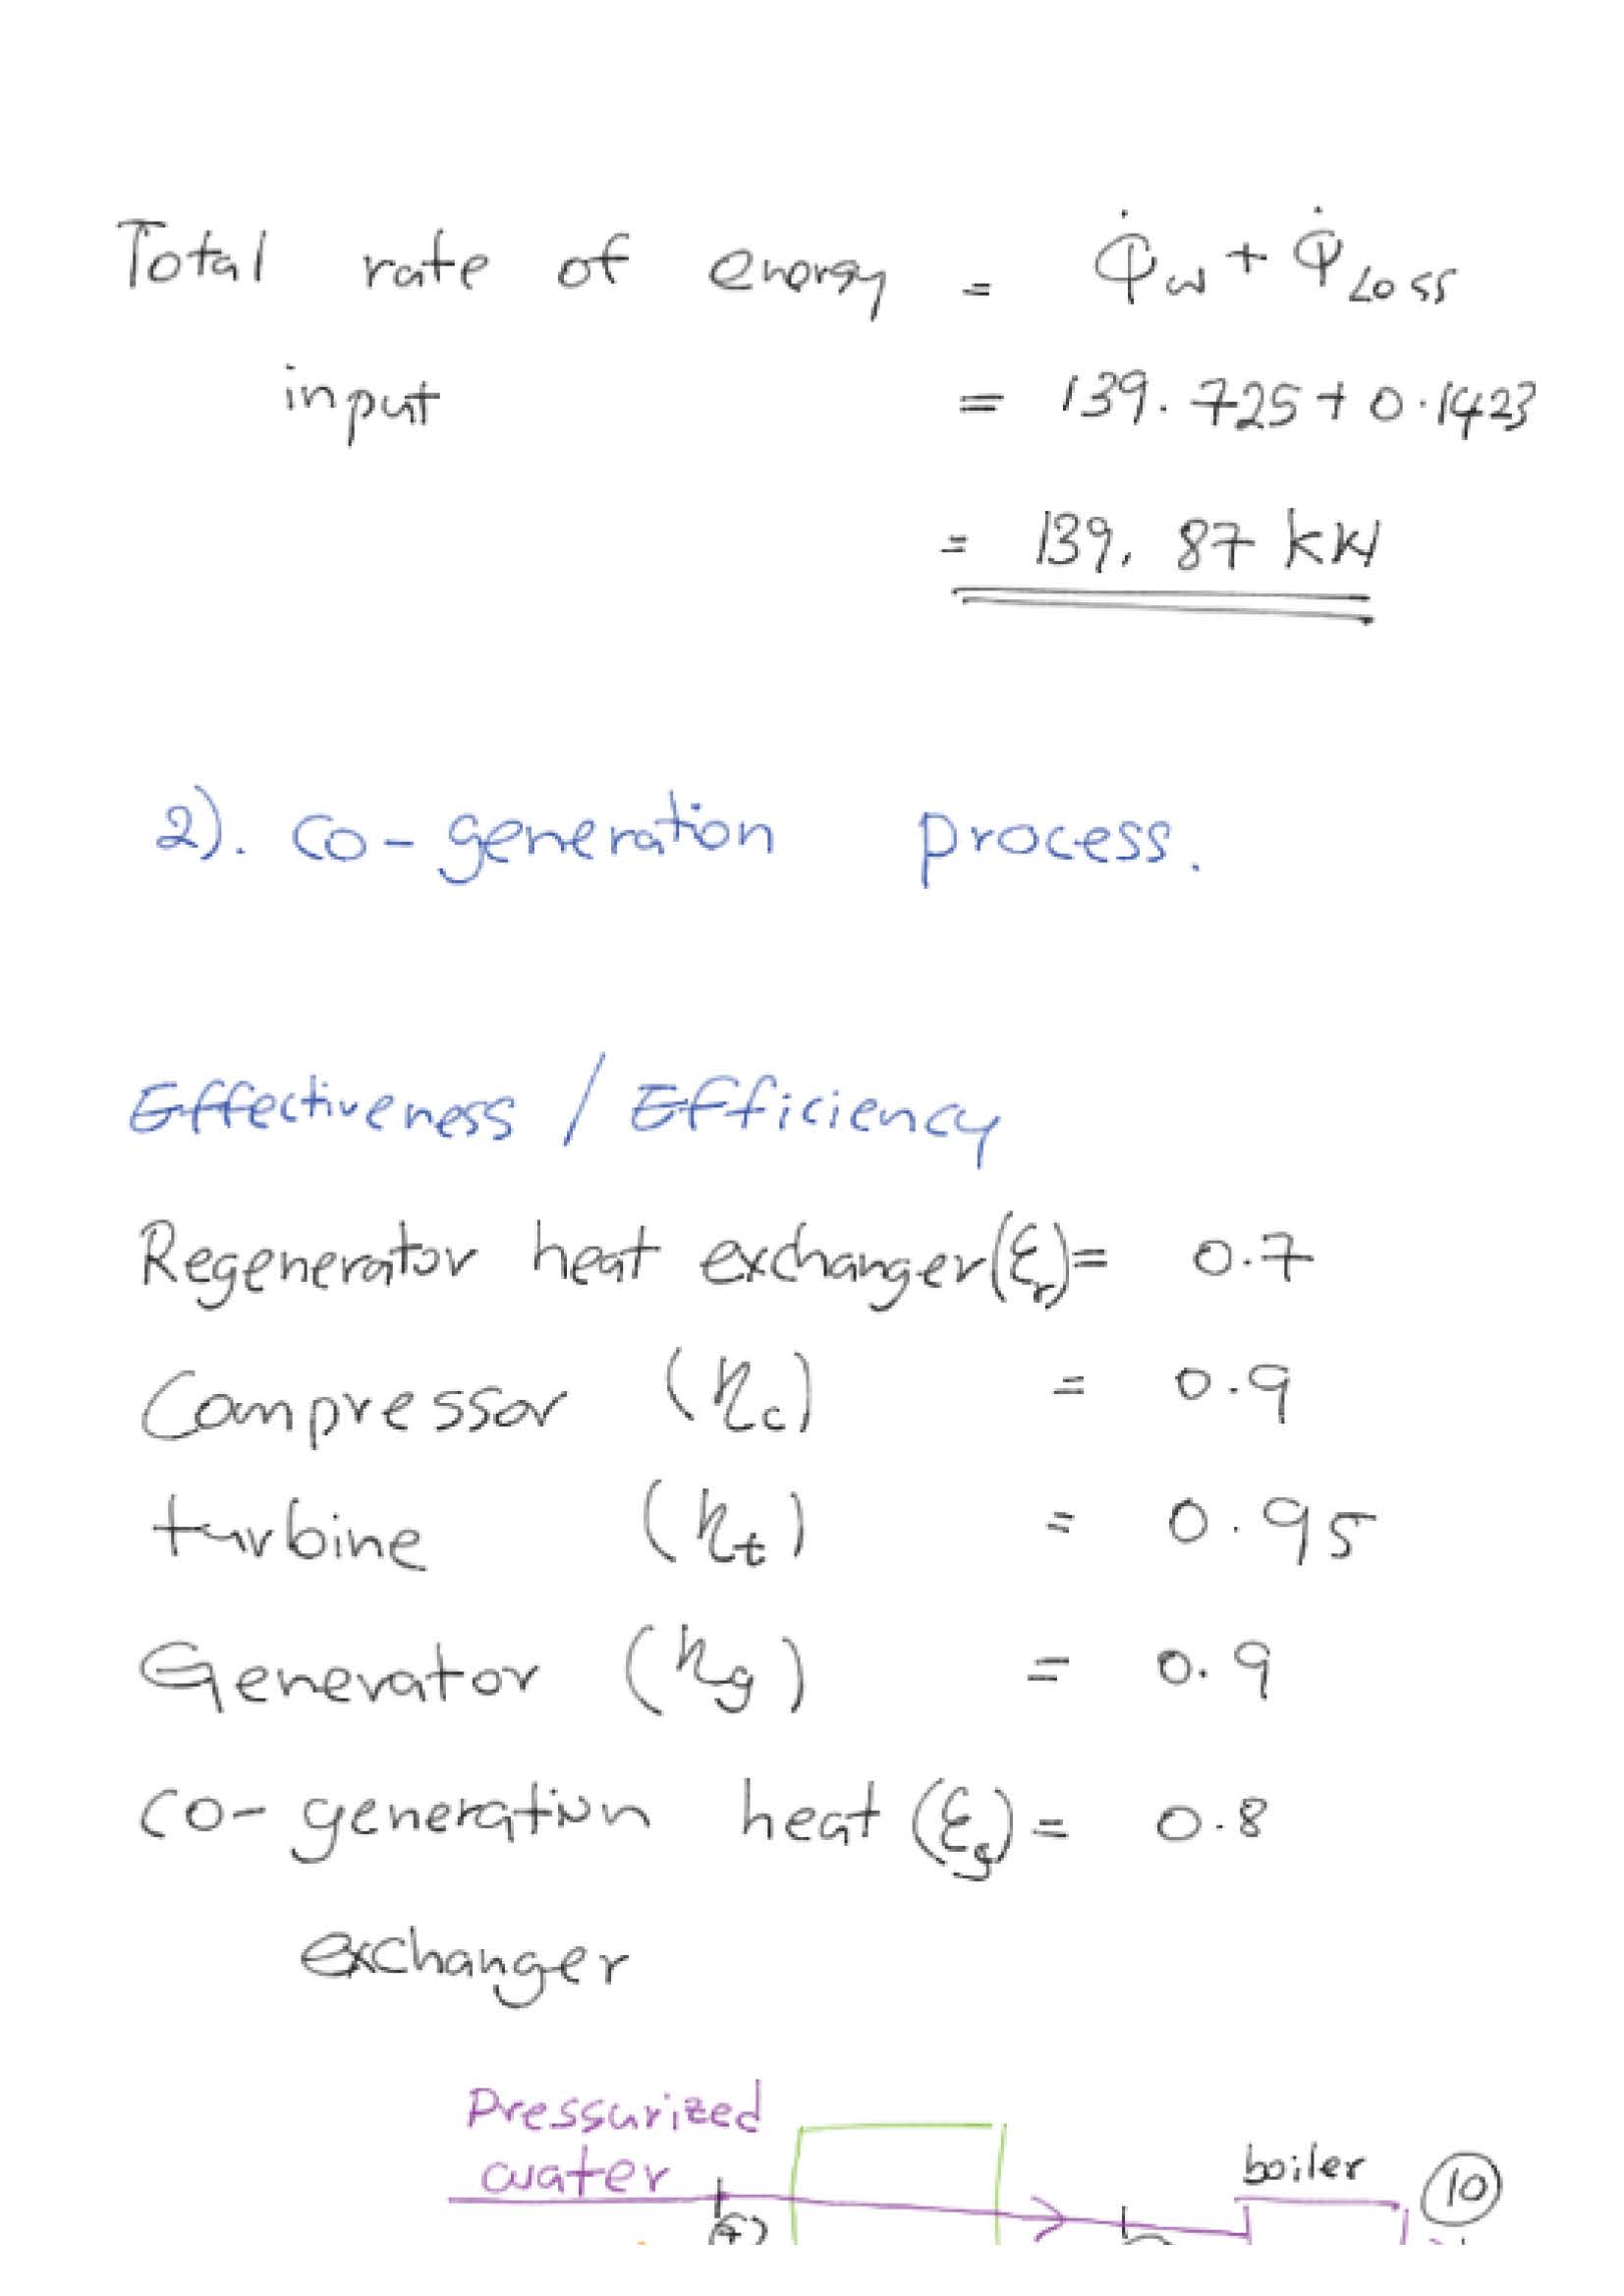 Total rate of energy = Q̇w + Q̇Loss
input = 139.725 + 0.1423
= 139.87 kW
2). co-generation process.
Effectiveness / Efficiency
Regenerator heat exchanger (Ɛr) = 0.7
Compressor (ηc) = 0.9
turbine (ηt) = 0.95
Generator (ηg) = 0.9
co-generation heat (Ɛg) = 0.8
exchanger
Pressurized
water
boiler
10